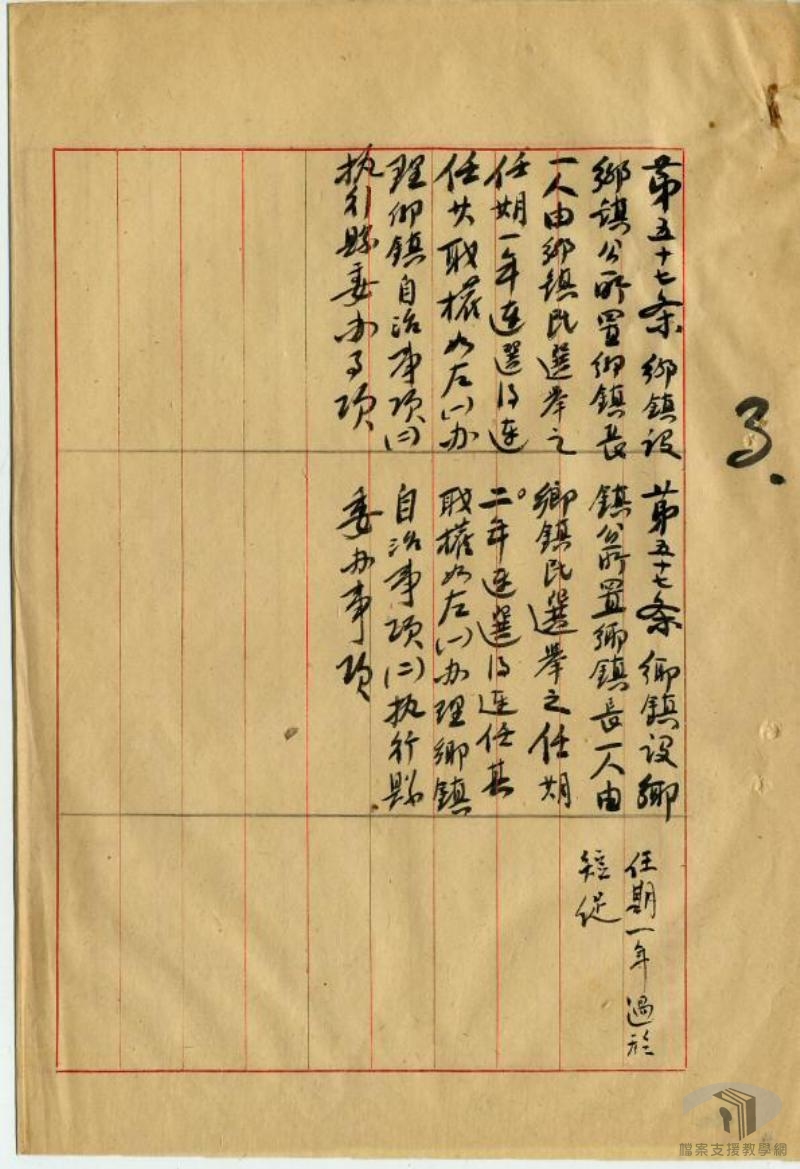 3.
第五十七条 鄉鎮設
鄉鎮公所置鄉鎮長
一人由鄉鎮民選举之
任期一年連選得連
任其职權如左(一)办
理鄉鎮自治事项(二)
执行縣委办事项
第五十七条 鄉鎮設鄉
鎮公所置鄉鎮長一人由
鄉鎮民選举之任期
二年連選得連任其
职權如左(一)办理鄉鎮
自治事项(二)执行縣
委办事项
任期一年過於
短促
檔案支援教學網